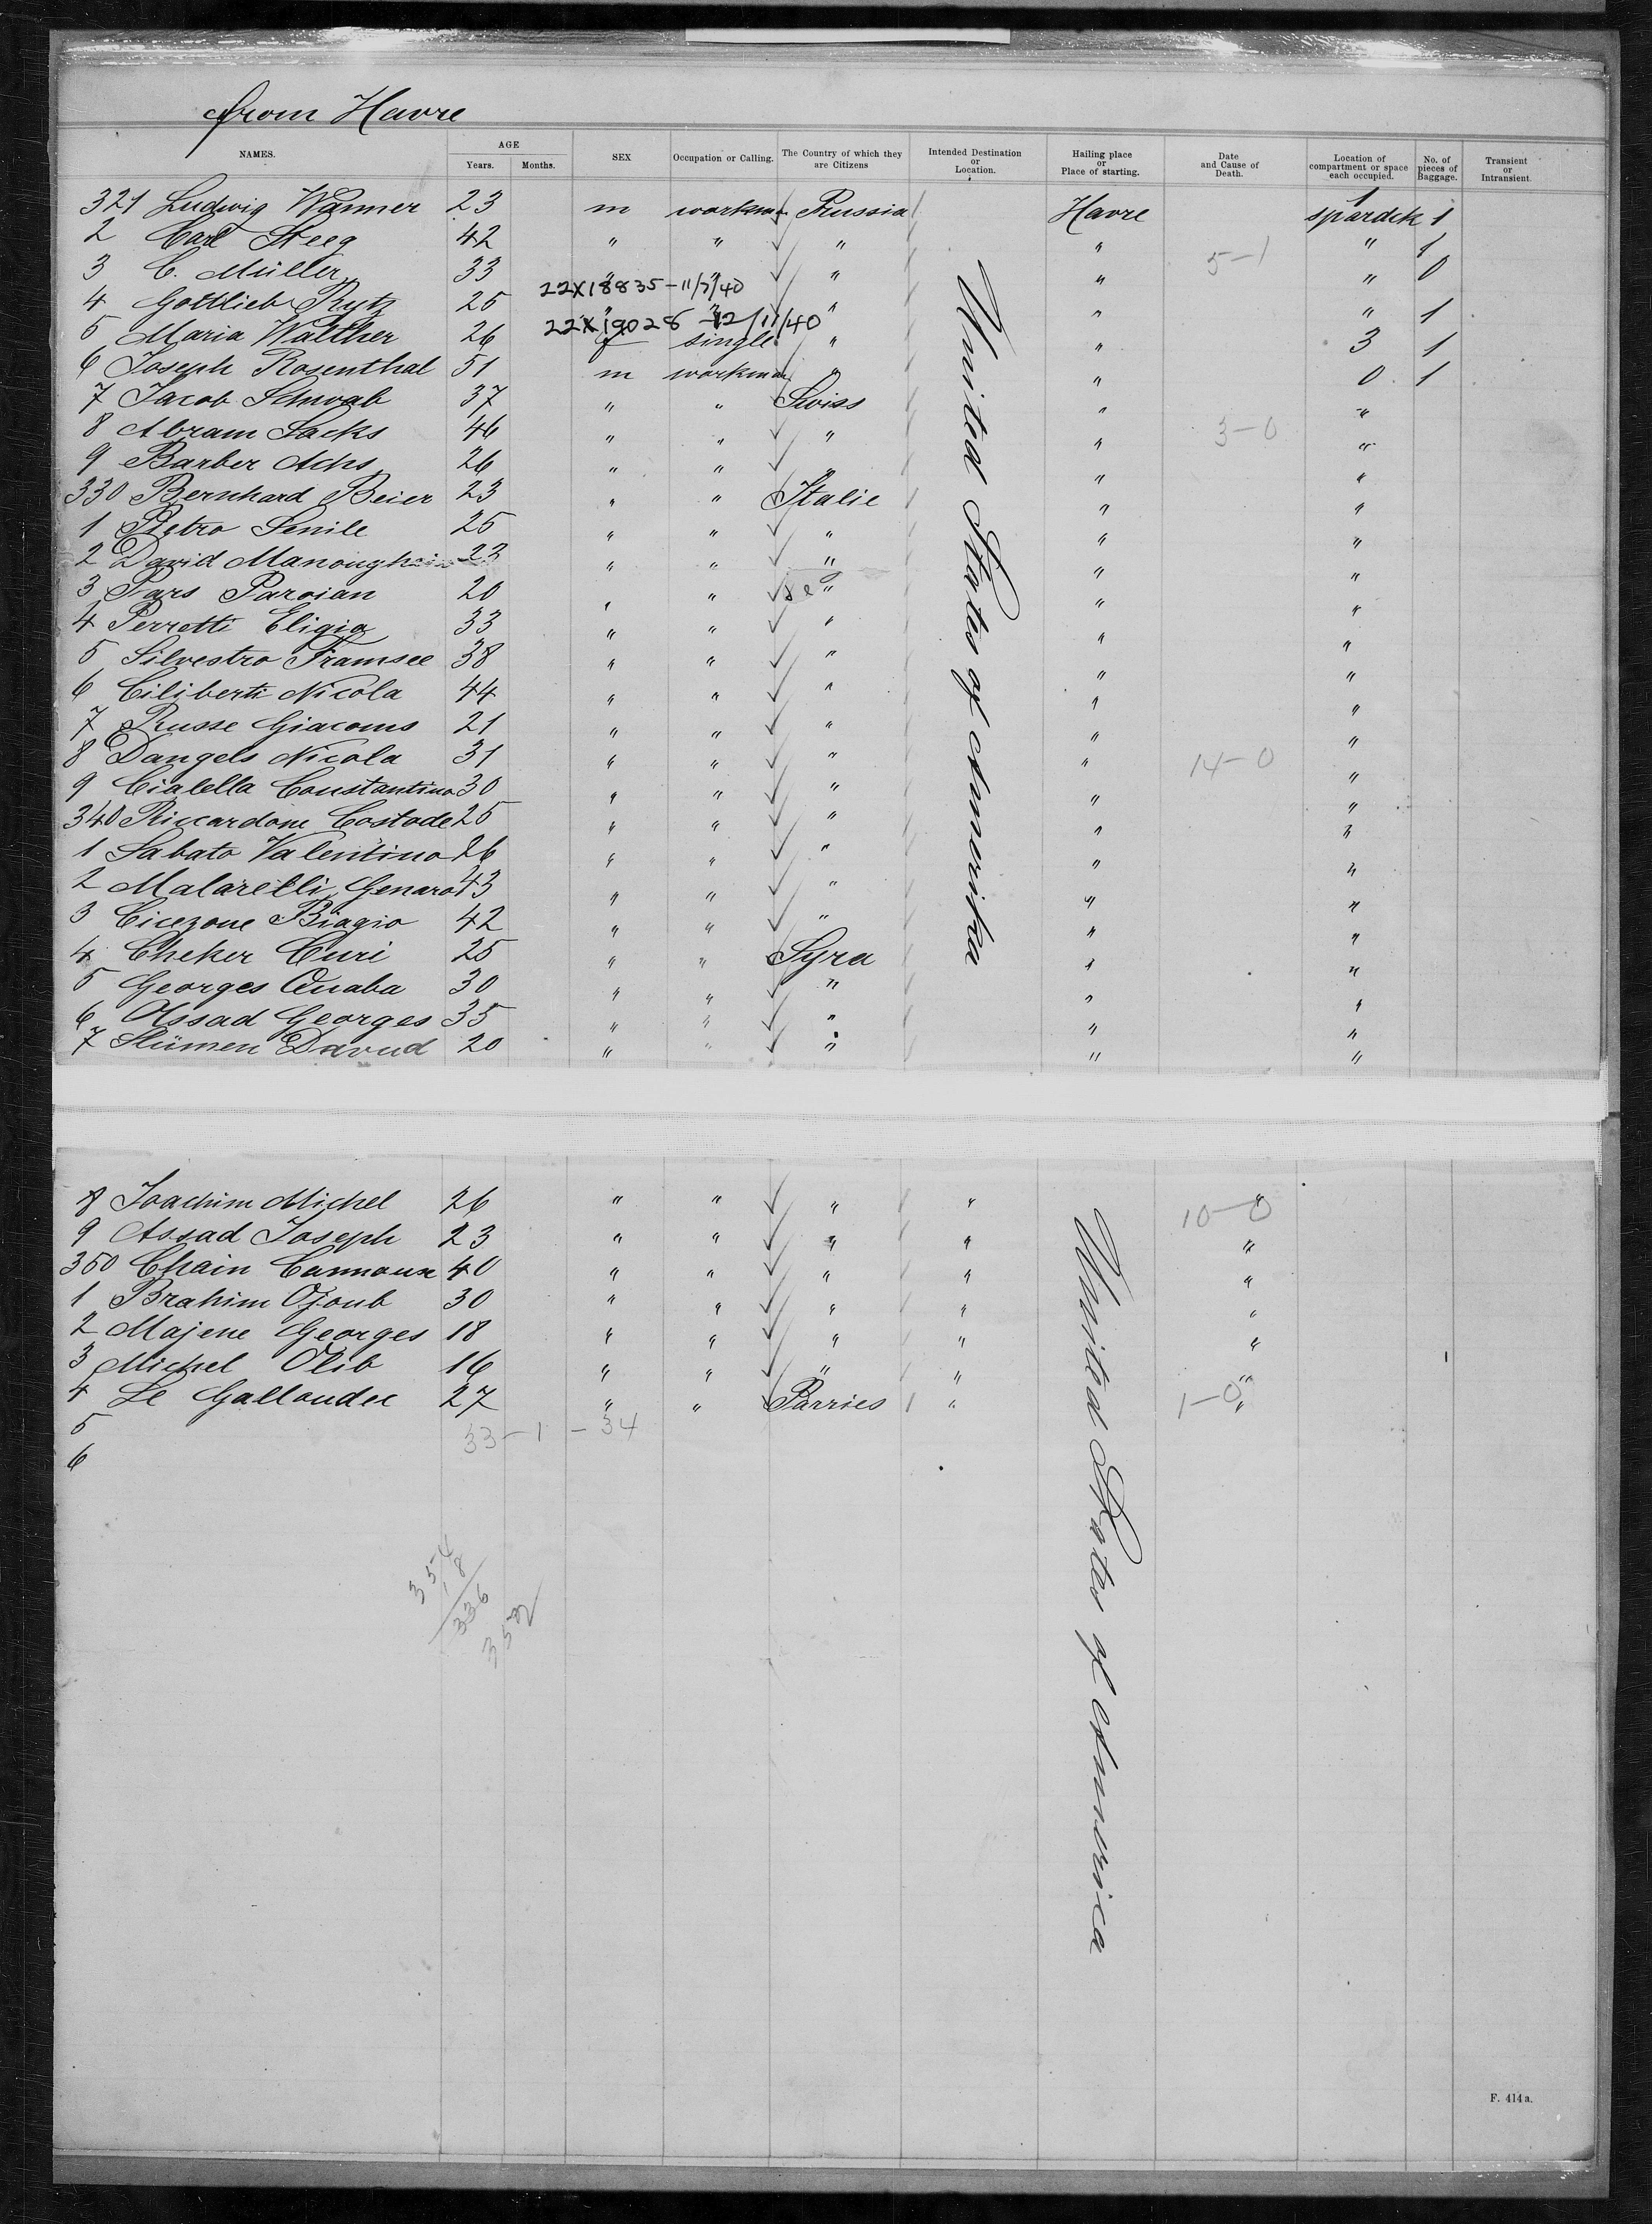 from Havre
NAMES. AGE Years. Months. SEX Occupation or Calling. The Country of which they are Citizens Intended Destination or Location. Hailing place or Place of starting. Date and Cause of Death. Location of compartment or space each occupied. No. of pieces of Baggage. Transient or Intransient.
321 Ludwig Wanner 23 m workman Russia Havre 1 spardek 1
2 Carl Steeg 42 " " " " 5-1 " 1
3 C. Müller 33 " " " " " 0
22X18835-11/7/40
4 Gottlieb Rytz 25 " " " " " 1
22X19028-12/11/40
5 Maria Walther 26 f single " " 3 1
6 Joseph Rosenthal 51 m workman " " 0 1
7 Jacob Schwab 37 " " Swiss " "
8 Abram Sacks 46 " " " " 3-0 "
9 Barber Achs 26 " " " " "
330 Bernhard Beier 23 " " Italie " "
1 Pietro Senile 25 " " " " "
2 David Manoughian 23 " " " " "
3 Pars Paroian 20 " " " " "
4 Perretti Eligio 33 " " " " "
5 Silvestro Framsee 38 " " " " "
6 Ciliberti Nicola 44 " " " " "
7 Russe Giacoms 21 " " " " "
8 Dangels Nicola 31 " " " " 14-0 "
9 Cialella Constantino 30 " " " " "
340 Riccardone Costode 25 " " " " "
1 Sabato Valentino 26 " " " " "
2 Malarelli Genaro 43 " " " " "
3 Cicezone Biagio 42 " " " " "
4 Cheker Curi 25 " " Syra " "
5 Georges Anaba 30 " " " " "
6 Assad Georges 35 " " " " "
7 Slümen Davud 20 " " " " "
United States of Amerika
8 Joachim Michel 26 " " " " 10-0 "
9 Assad Joseph 23 " " " " "
350 Chain Cannoux 40 " " " " "
1 Brahim Ojoub 30 " " " " "
2 Majene Georges 18 " " " " "
3 Michel Olib 16 " " " " "
4 Le Galloudec 27 " " Parries " 1-0 "
5 33-1-34
6
United States of America
354
18
336
352
F. 414a.